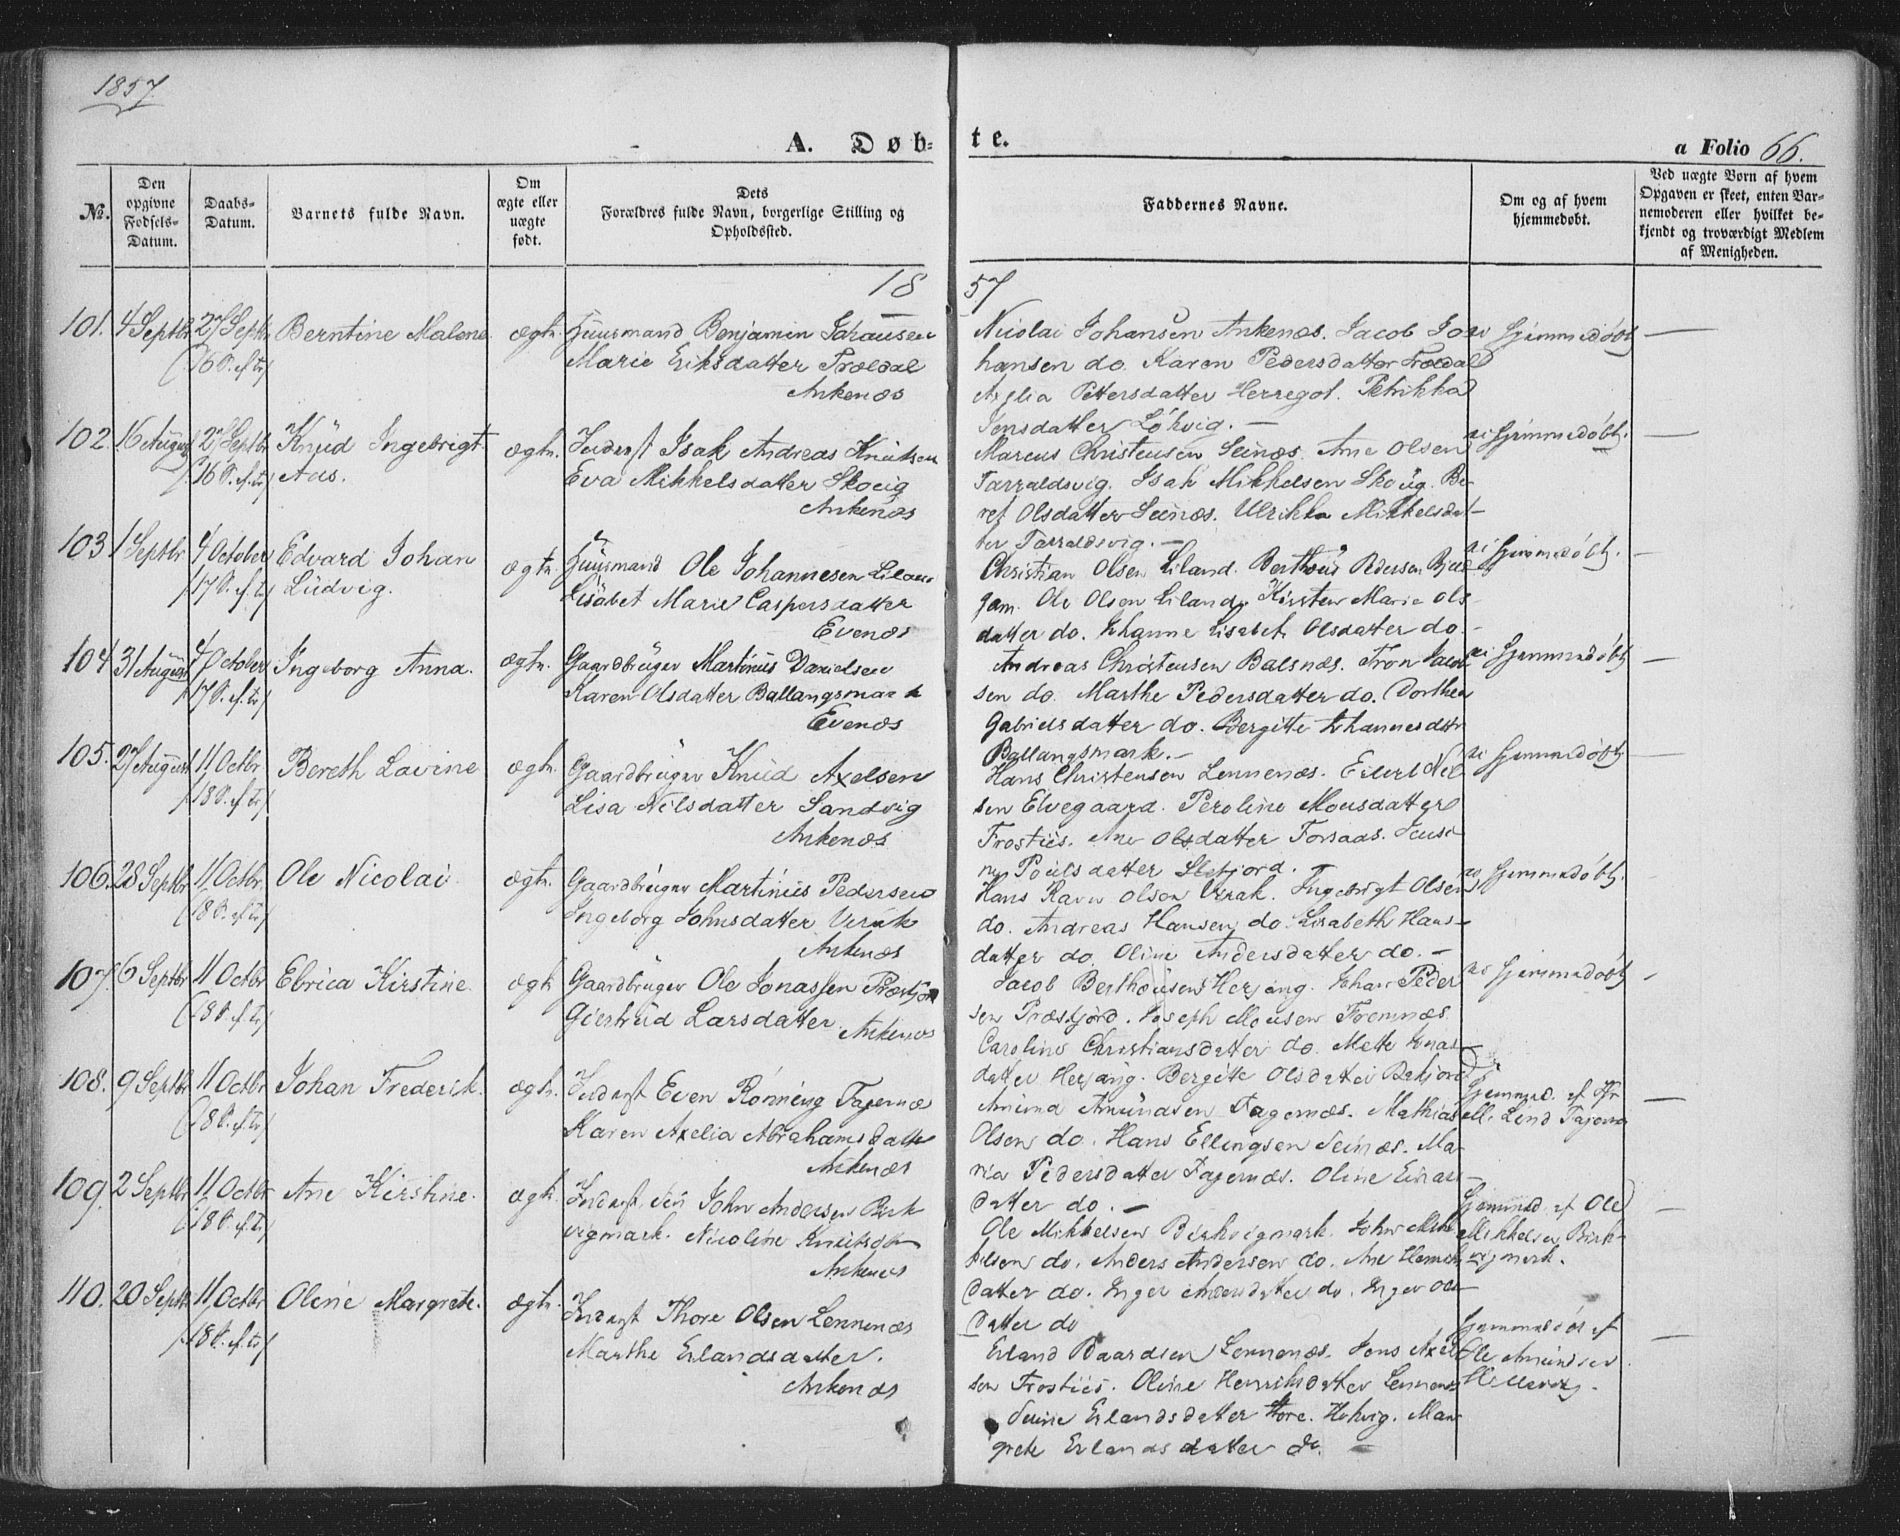 1857
A. Døb-
te.
a Folio 66.
No.
Den
opgivne
Fødsels-
Datum.
Daabs-
Datum.
Barnets fulde Navn.
Om
ægte eller
uægte
født.
Dets
Forældres fulde Navn, borgerlige Stilling og
Opholdssted.
Faddernes Navne.
Om og af hvem
hjemmedøbt.
Ved uægte Børn af hvem
Opgaven er skeet, enten Bar-
nemoderen eller hvilket be-
kjendt og troværdigt Medlem
af Menigheden.
18
57
101. 4 Septbr 27 Septbr Berntine Malene ægte. Huusmand Benjamin Johansen
(16 S. ef. tr) Marie Eriksdatter Troldal
Ankenæs
Nicolai Johansen Ankenæs. Jacob Jo-
hansen do. Karen Pedersdatter Troldal
Axelia Pettersdatter Herregot. Petrikka
Jensdatter Løkvig. —
ei hjemmedøbt —
102. 16 August 27 Septbr Knud Ingebrigt ægte. Inderst Isak Andreas Knutsen
(16 S. ef. tr) Aas. Eva Mikkelsdatter Skovig
Ankenæs
Marcus Christensen Seinæs. Ane Olsen
Tarraldsvig. Isak Mikkelsen Skoug. Be-
ret Olsdatter Seinæs. Ulrikka Mikkelsdat-
ter Tarraldsvig. —
ei hjemmedøbt. —
103 1 Septbr 4 October Edvard Johan ægte. Huusmand Ole Johannesen Liland
(17 S. ef. tr) Ludvig. Lisabet Marie Caspersdatter
Evenæs
Christian Olsen Liland. Bertheus Pedersen
Ole Olsen Liland. Kirsten Marie Ols-
datter do. Johanne Lisabet Olsdatter do.
ei hjemmedøbt. —
104 31 August 4 October Ingeborg Anna. ægte. Gaardbruger Martinus Danielsen
(17 S. ef. tr) Karen Olsdatter Ballangsmark
Evenæs
Andreas Christensen Balsnæs. Tron Jacob-
sen do. Marthe Pedersdatter do. Dorthea
Gabrielsdatter do. Bergitte Johannesdtr
Ballangsmark. —
ei hjemmedøbt —
105. 27 August 11 Octbr Bereth Lovine ægte. Gaardbruger Knud Axelsen
(18 S. ef. tr) Lisa Nilsdatter Sandvig
Ankenæs
Hans Christensen Lennenæs. Eilert Nil-
sen Elvegaard. Peroline Monsdatter
Frostiis. Ane Olsdatter Forsaas.
Poulsdatter
ei hjemmedøbt —
106. 28 Septbr 11 Octbr. Ole Nicolai ægte. Gaardbruger Martinus Pedersen
(18 S. ef. tr) Ingeborg Johnsdatter Virak
Ankenæs
Hans Ravn Olsen Virak. Ingebrigt Olsen
do. Andreas Hansen do. Lisabeth Hans-
datter do. Oline Andersdatter do. —
ei hjemmedøbt.
107. 6 Septbr 11 Octbr Elrica Kirstine. ægte Gaardbruger Ole Jonassen Præstfjord
(18 S. ef. tr) Giertrud Larsdatter Ankenæs
Jacob Bertheusen Herjang. Johan Peder-
sen Præstfjord. Joseph Monsen Fremnæs.
Caroline Christiansdatter do. Mette Jonas-
datter Herjang. Bergitte Olsdatter
ei hjemmedøbt —
108. 9 Septbr 11 Octbr Johan Frederik. ægte. Inderst Even Rønning Fagernæs
(18 S. ef. tr) Karen Axelia Abrahamsdatter
Ankenæs
Amund Amundsen Fagernæs. Mathias
Olsen do. Hans Ellingsen Seinæs. Ma-
ria Pedersdatter Fagernæs. Oline Einars-
datter do. —
Hjemmed. af Hr
M. Lind Fagernæs —
109. 2 Septbr 11 Octbr Ane Kirstine. ægte. Inderst John Andersen Birk-
(18 S. ef. tr) vigmark. Nicoline Knutsdtr
Ankenæs
Ole Mikkelsen Birkvigmark. John Mik-
kelsen do. Anders Andersen do. Ane
datter do. Inger Andersdatter do. Inger Ols-
datter do
Hjemmed. af Ole
Mikkelsen Birk-
vigmark. —
110. 20 Septbr 11 Octbr Oline Margrete. ægte. Inderst Thore Olsen Lennenæs
(18 S. ef. tr) Marthe Erlandsdatter.
Ankenæs
Erland Baardsen Lennenæs. Jens Axel-
sen Frostiis. Oline Henriksdatter Lennenæs
Erlandsdatter Hokvig. Mar-
grete Erlandsdatter do. —
hjemmedøbt af
Ole Amundsen —